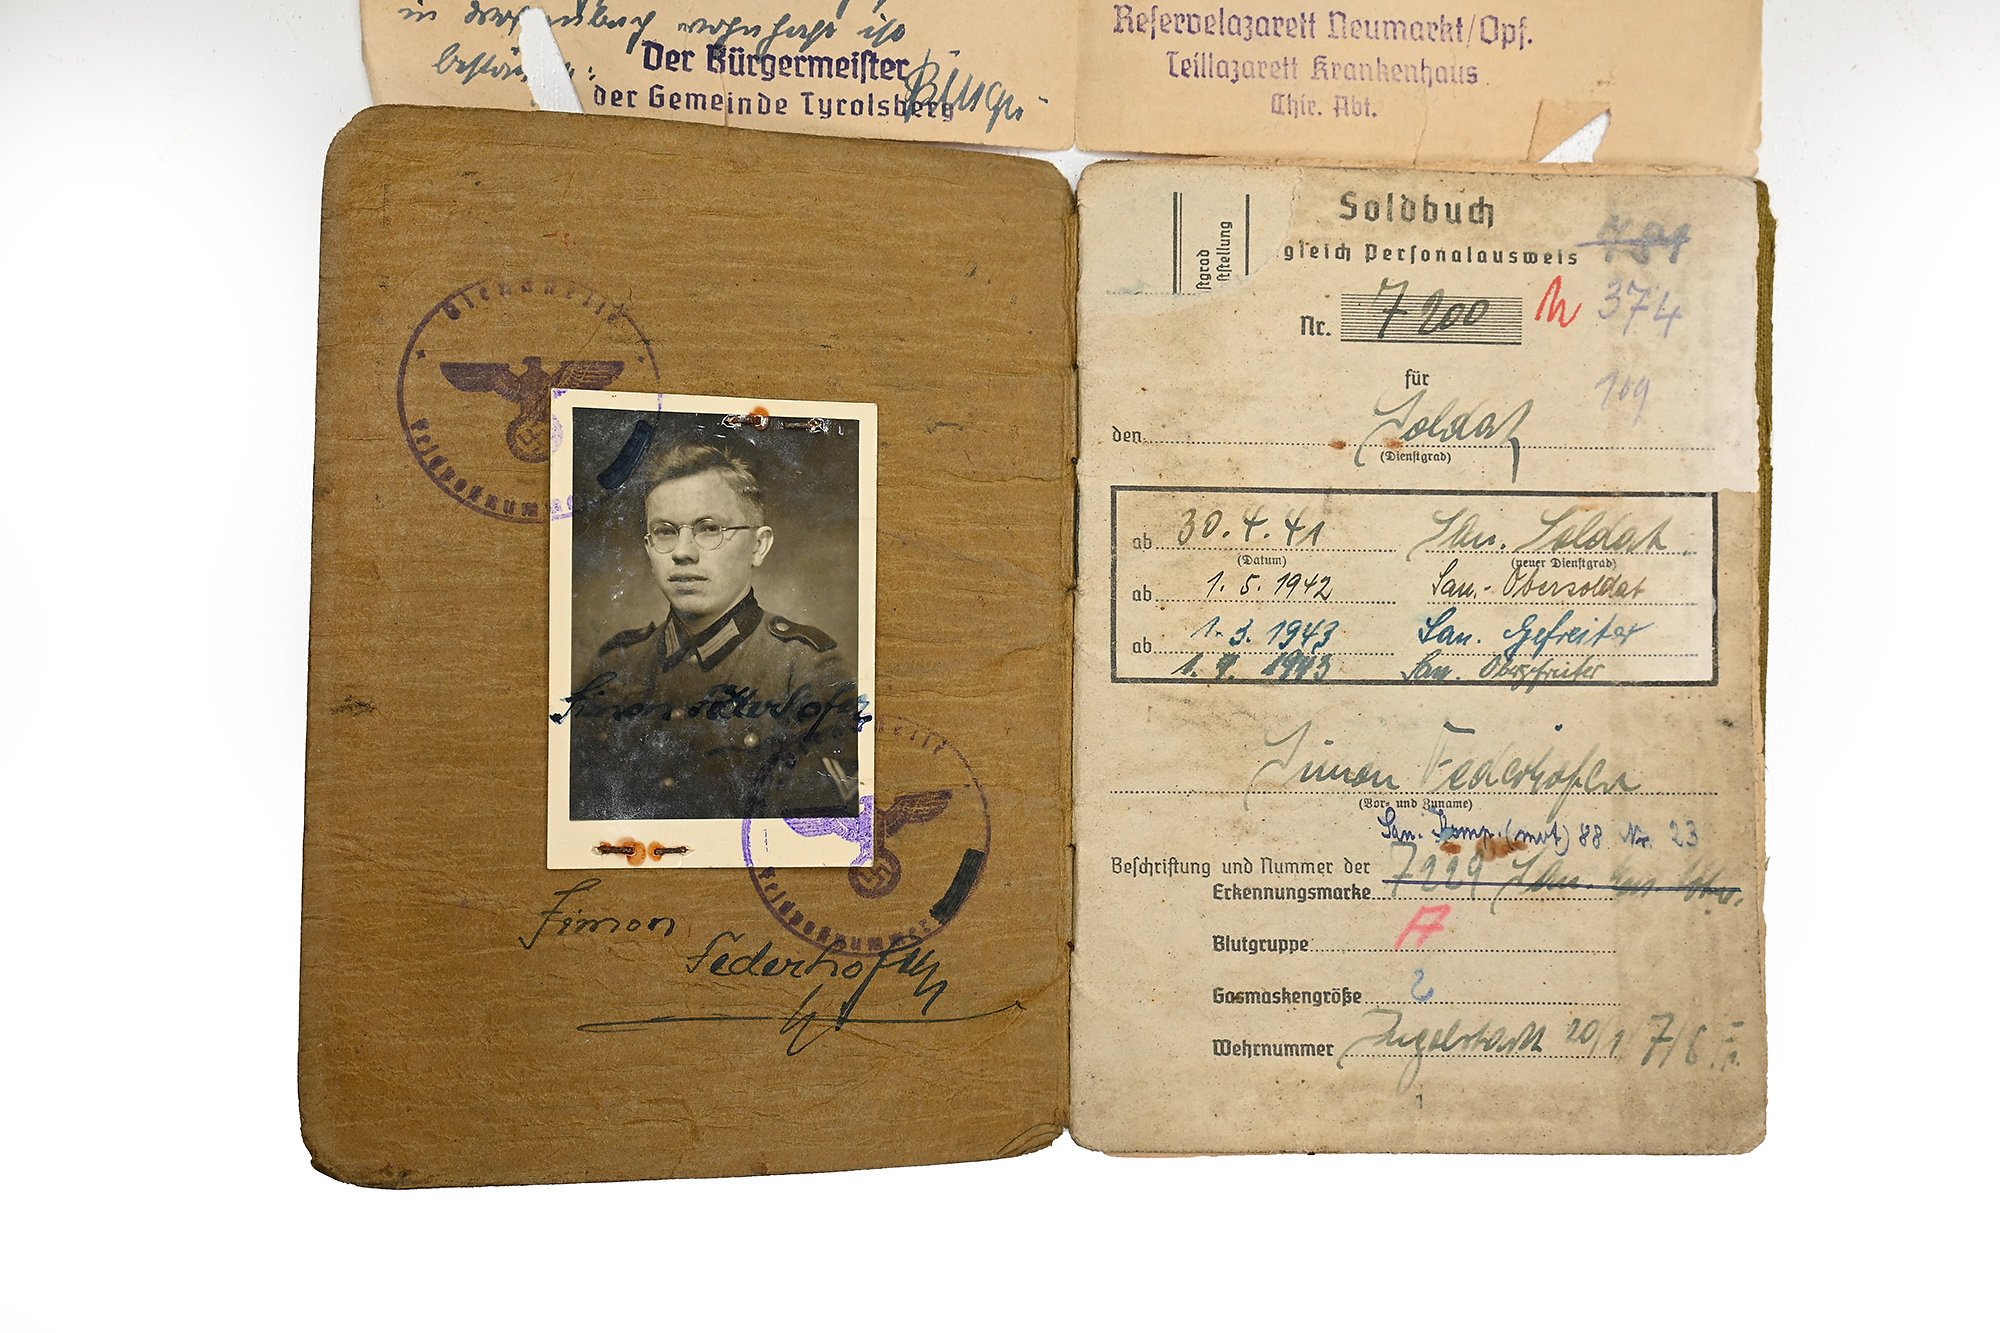 in wohnhaft ist
Der Bürgermeister
der Gemeinde Tyrolsberg
Reservelazarett Neumarkt/Opf.
Teillazarett Krankenhaus
Chir. Abt.
Dienststelle
Feldpostnummer
Simon Federhofer
Dienststelle
Feldpostnummer
Simon
Federhofer
stgrad
tstellung
Soldbuch
gleich Personalausweis
374
Nr. 7200
109
für
den Soldat
(Dienstgrad)
ab 30.4.41 San. Soldat
(Datum) (neuer Dienstgrad)
ab 1.5.1942 San.-Obersoldat
ab 1.3.1943 San. Gefreiter
1.9.1943 San. Obergefreiter
Simon Federhofer
(Vor- und Zuname)
San. Komp. (mot) 88 Nr. 23
Beschriftung und Nummer der
Erkennungsmarke 7229 San.
Blutgruppe A
Gasmaskengröße 2
Wehrnummer Ingolstadt 20/1/7/6